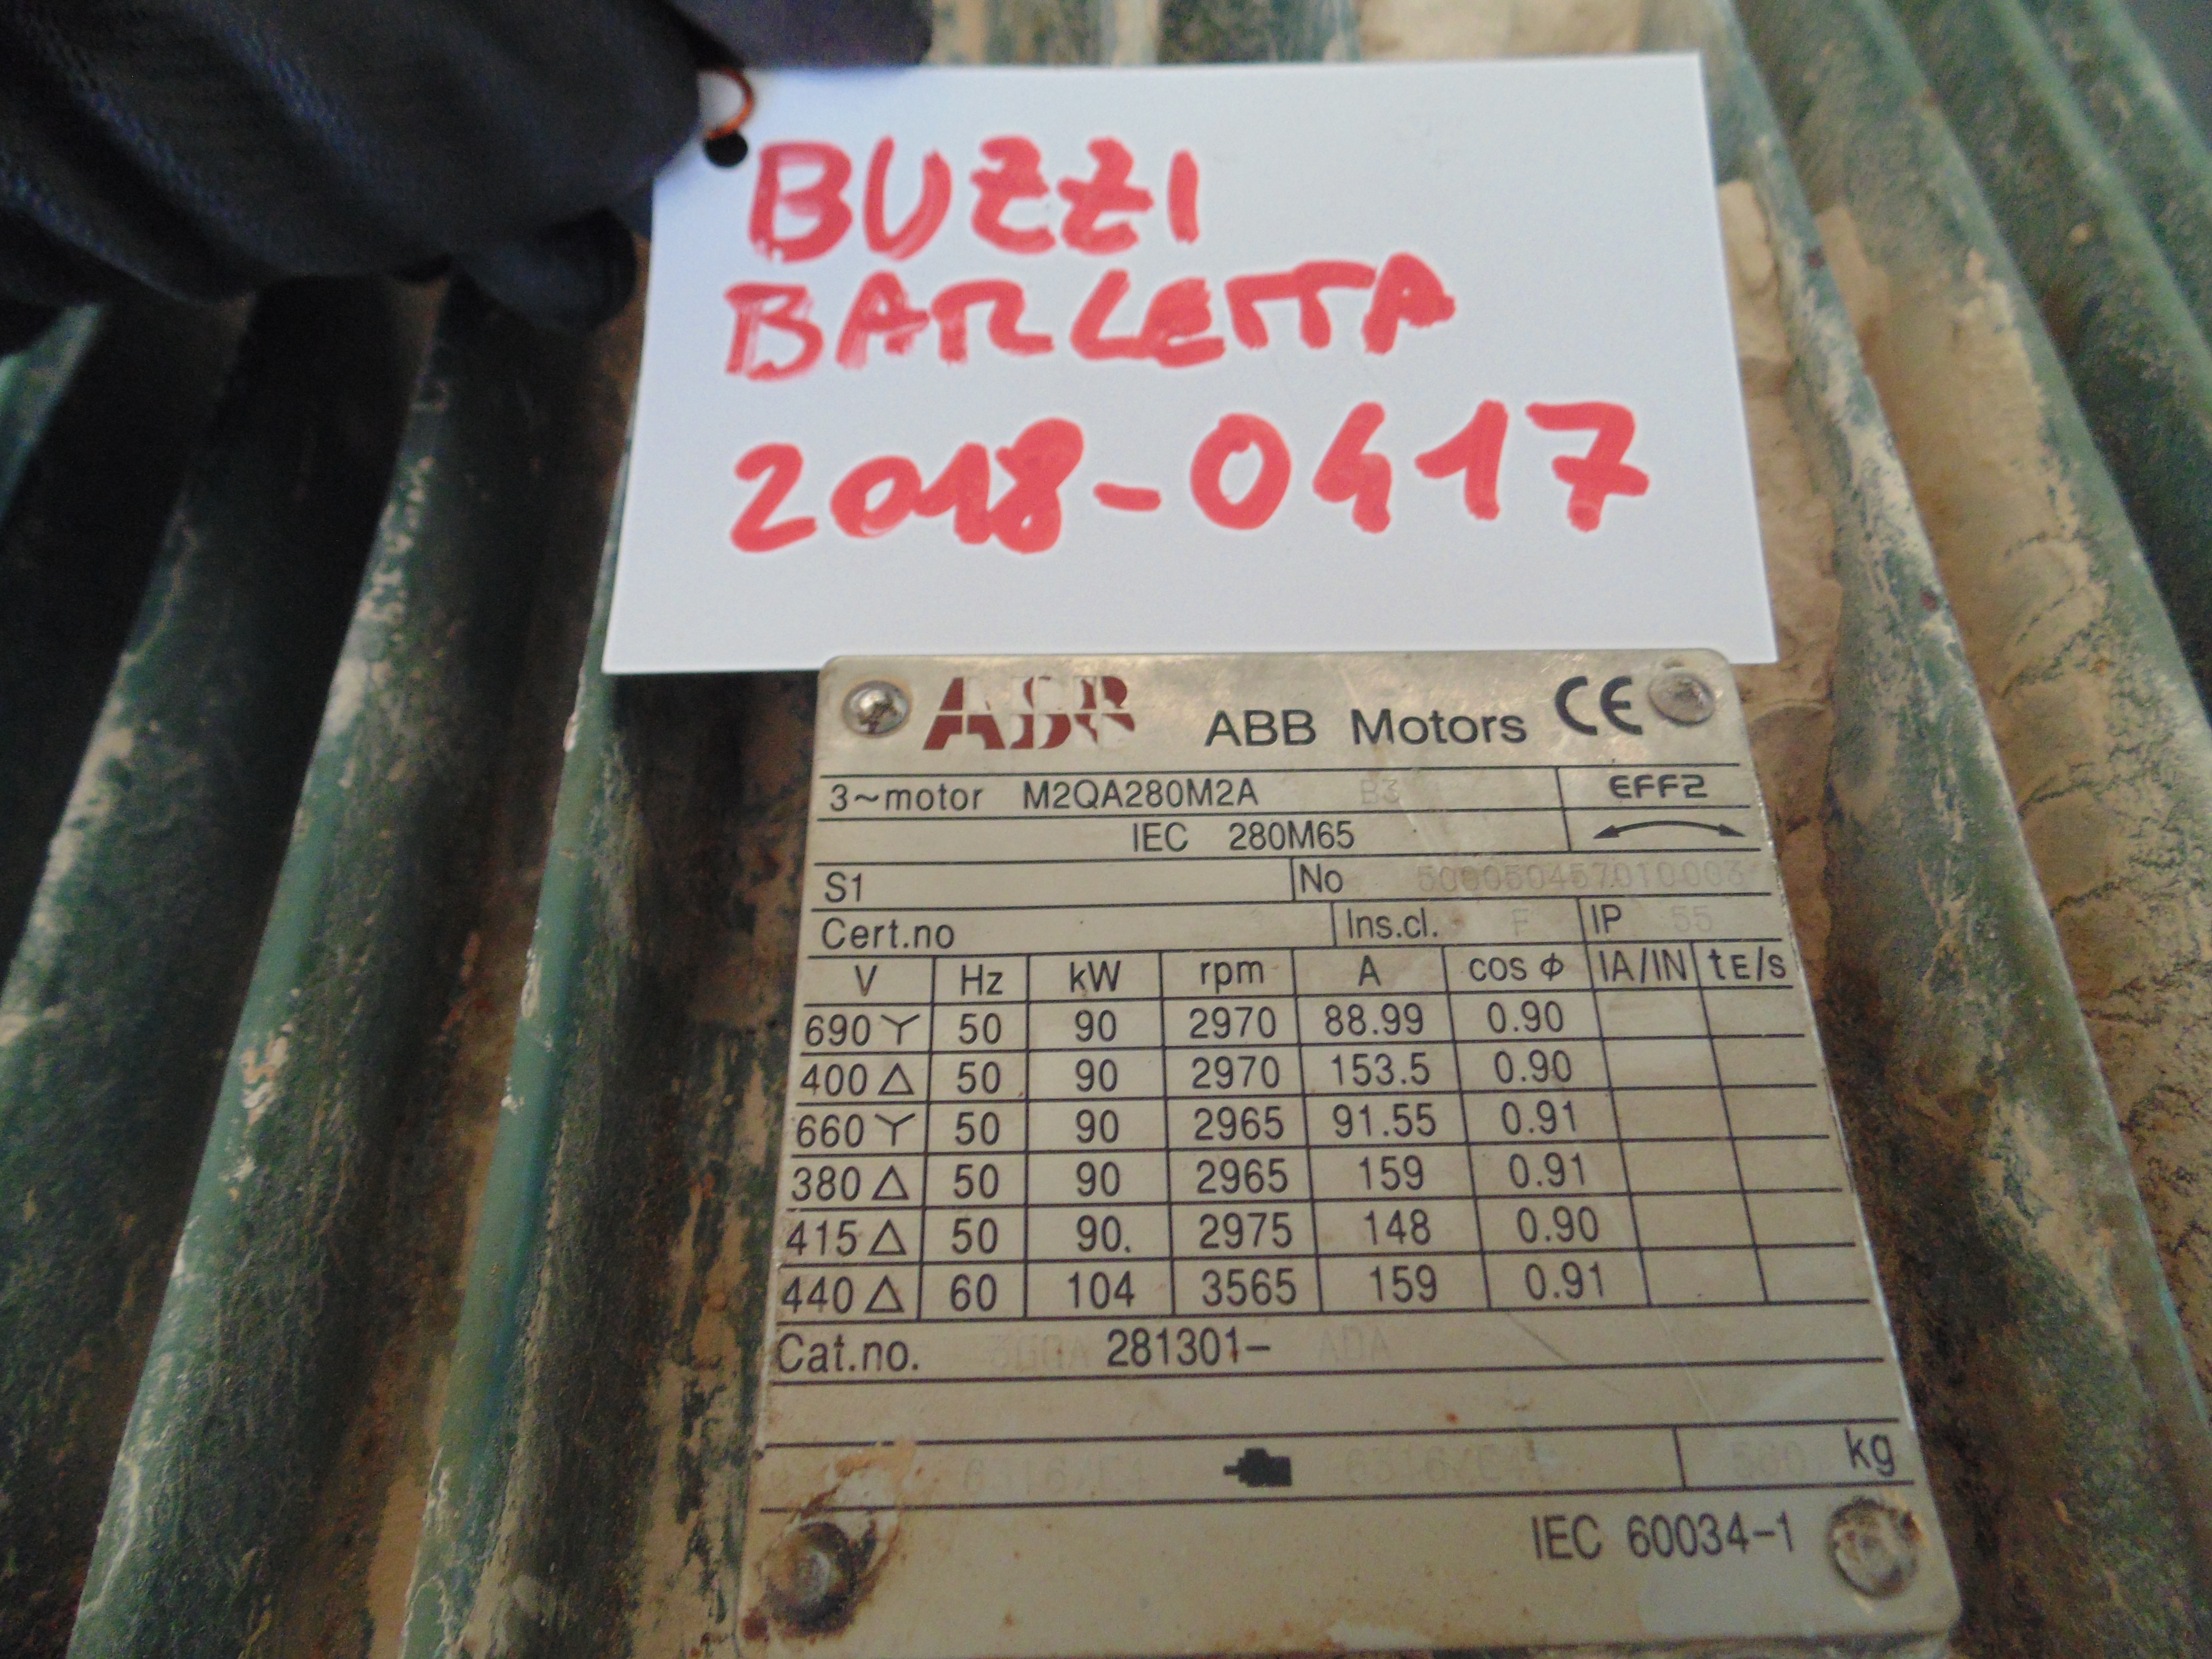 BUZZI
BARLETTA
2018-0417
ABB ABB Motors CE
3~motor M2QA280M2A B3 EFF2
IEC 280M65
S1 No
Cert.no Ins.cl. F IP 55
V Hz kW rpm A cos Φ IA/IN tE/s
690 Y 50 90 2970 88.99 0.90
400 Δ 50 90 2970 153.5 0.90
660 Y 50 90 2965 91.55 0.91
380 Δ 50 90 2965 159 0.91
415 Δ 50 90. 2975 148 0.90
440 Δ 60 104 3565 159 0.91
Cat.no. 281301- ADA
kg
IEC 60034-1